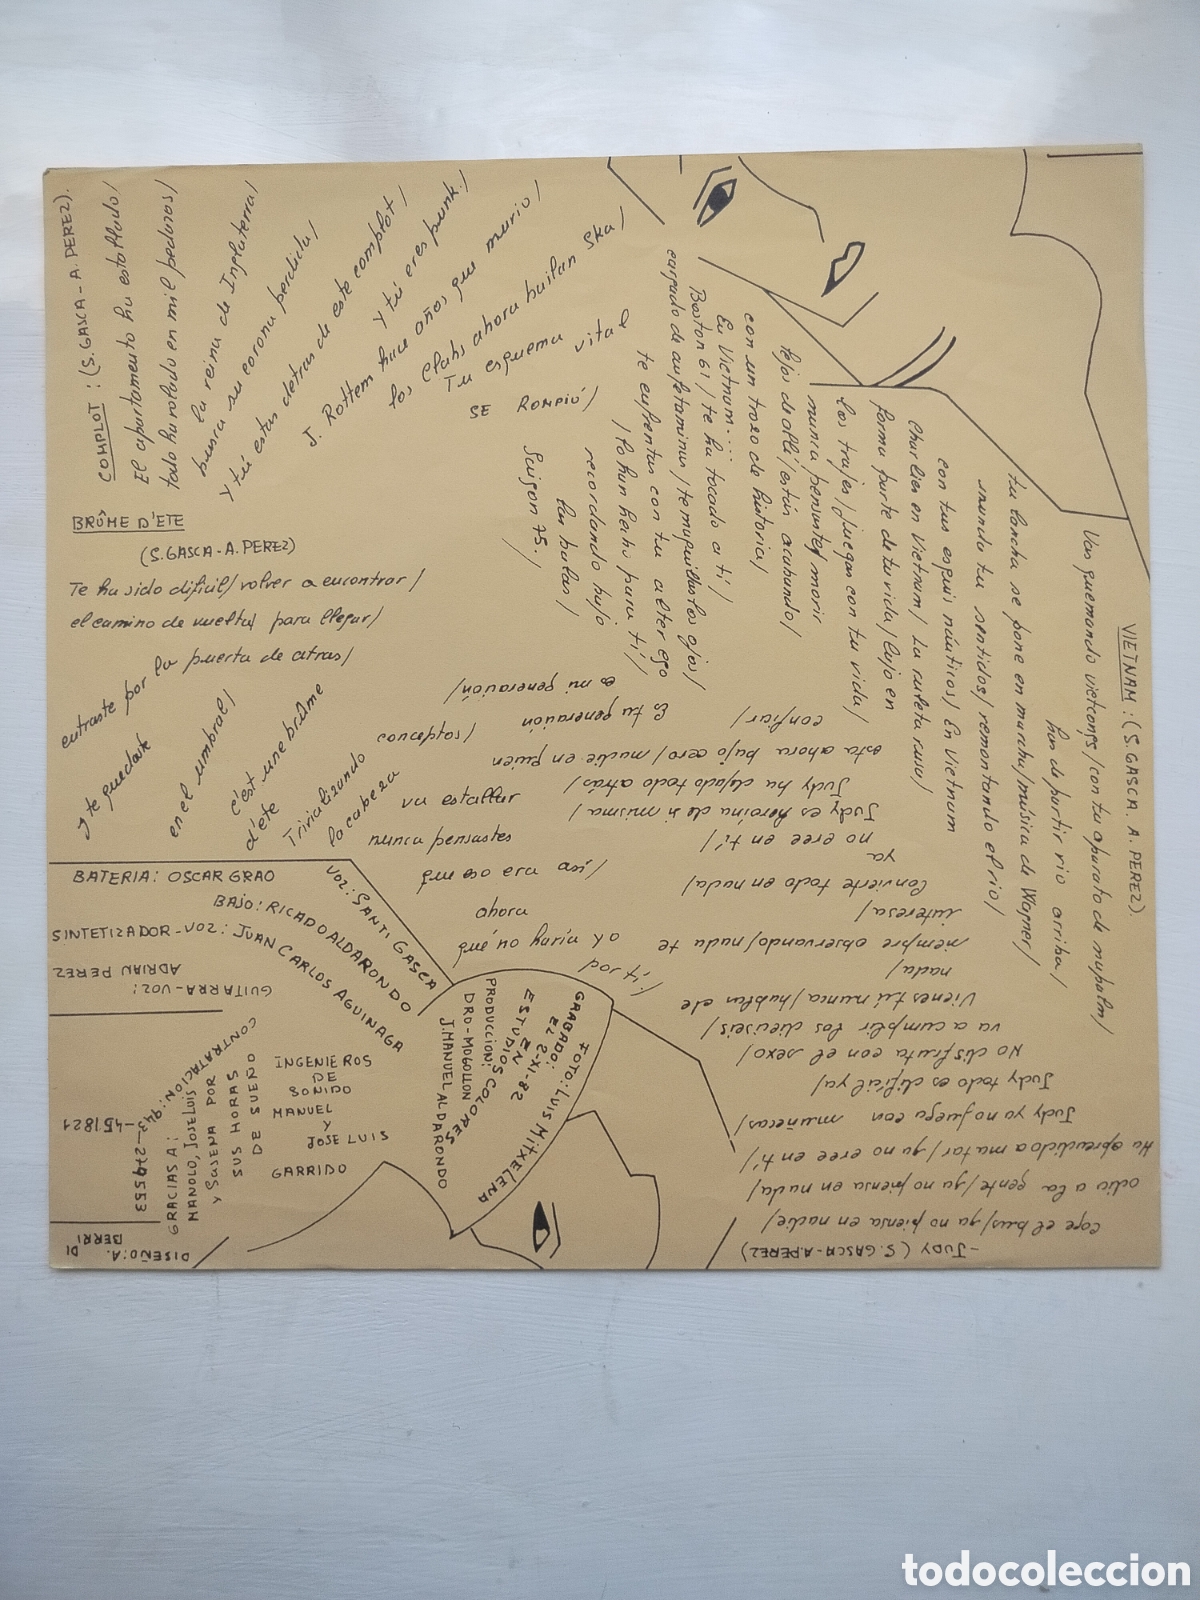 COMPLOT : (S. GASCA - A. PEREZ).
El apartamento ha estallado/
todo ha volado en mil pedazos/
la reina de Inglaterra/
busca su corona perdida/
Y tú estas detras de este complot/
Y tú eres punk./
J. Rottem hace años que murio/
los Clahs ahora bailan Ska/
Tu esquema vital
SE ROMPIÓ/
BRÛME D'ETE
(S. GASCA - A. PEREZ)
Te ha sido dificil/ volver a encontrar/
el camino de vuelta/ para llegar/
entraste por la puerta de atras/
y te quedaste
en el umbral/
c'est une brûme
d'éte
Trivializando
la cabeza
va estallar
nunca pensastes
que eso era asi/
ahora
qué no haria yo
por ti/
VIETNAM : (S. GASCA. A. PEREZ).
Vas quemando vietcongs/ con tu aparato de napalm/
han de partir rio arriba/
tu lancha se pone en marcha/ música de Wagner/
inunda tus sentidos/ remontando el rio/
con tus esquis náuticos/ En Vietnam
Charlies en Vietnam/ La ruleta rusa/
forma parte de tu vida/ lujo en
los trajes/ juegas con tu vida/
nunca/ pensaste/ morir
lejos de allí/ estás acabando/
con un trozo de historia/
En Vietnam....
Boston 61/ te ha tocado a ti/
cargado de anfetaminas/ te maquillas los ojos/
te enfrentas con tu alter ego
/ lo han hecho para ti/
recordando bajo
las balas/
Saigon 75./
- JUDY (S. GASCA - A. PEREZ)
Coge el bus/ ya no piensa en nadie/
odia a la gente/ ya no piensa en nada/
Ha aprendido a matar/ ya no cree en ti/
Judy ya no juega con muñecas/
Judy todo es dificil ya/
No disfruta con el sexo/
va a cumplir los dieciseis/
Vienes tú nunca/ hablan de
nada/
siempre observando/ nada te
interesa/
Convierte todo en nada/
ya
no cree en ti/
Judy es heroina de si misma/
Judy ha dejado todo atrás/
esta ahora bajo cero/ nadie en quien
confiar/
Es tu generación
es mi generación/
BATERIA: OSCAR GRAO
VOZ: SANTI GASCA
BAJO: RICADO ALDARONDO
SINTETIZADOR - VOZ: JUAN CARLOS AGUINAGA
GUITARRA - VOZ:
ADRIAN PEREZ
CONTRATACION: 943 - 274553
- 451821
GRACIAS A:
MANOLO, JOSE LUIS
Y SUSENA POR
SUS HORAS
DE SUEÑO
INGENIEROS
DE
SONIDO
MANUEL
Y
JOSE LUIS
GARRIDO
PRODUCCION:
DRO - MOGOLLON
J. MANUEL ALDARONDO
GRABADO:
EL 2-XI-82
EN
ESTUDIOS COLORES
FOTO: LUIS MITXELENA
DISEÑO: A.
DI
BERRI
todocoleccion